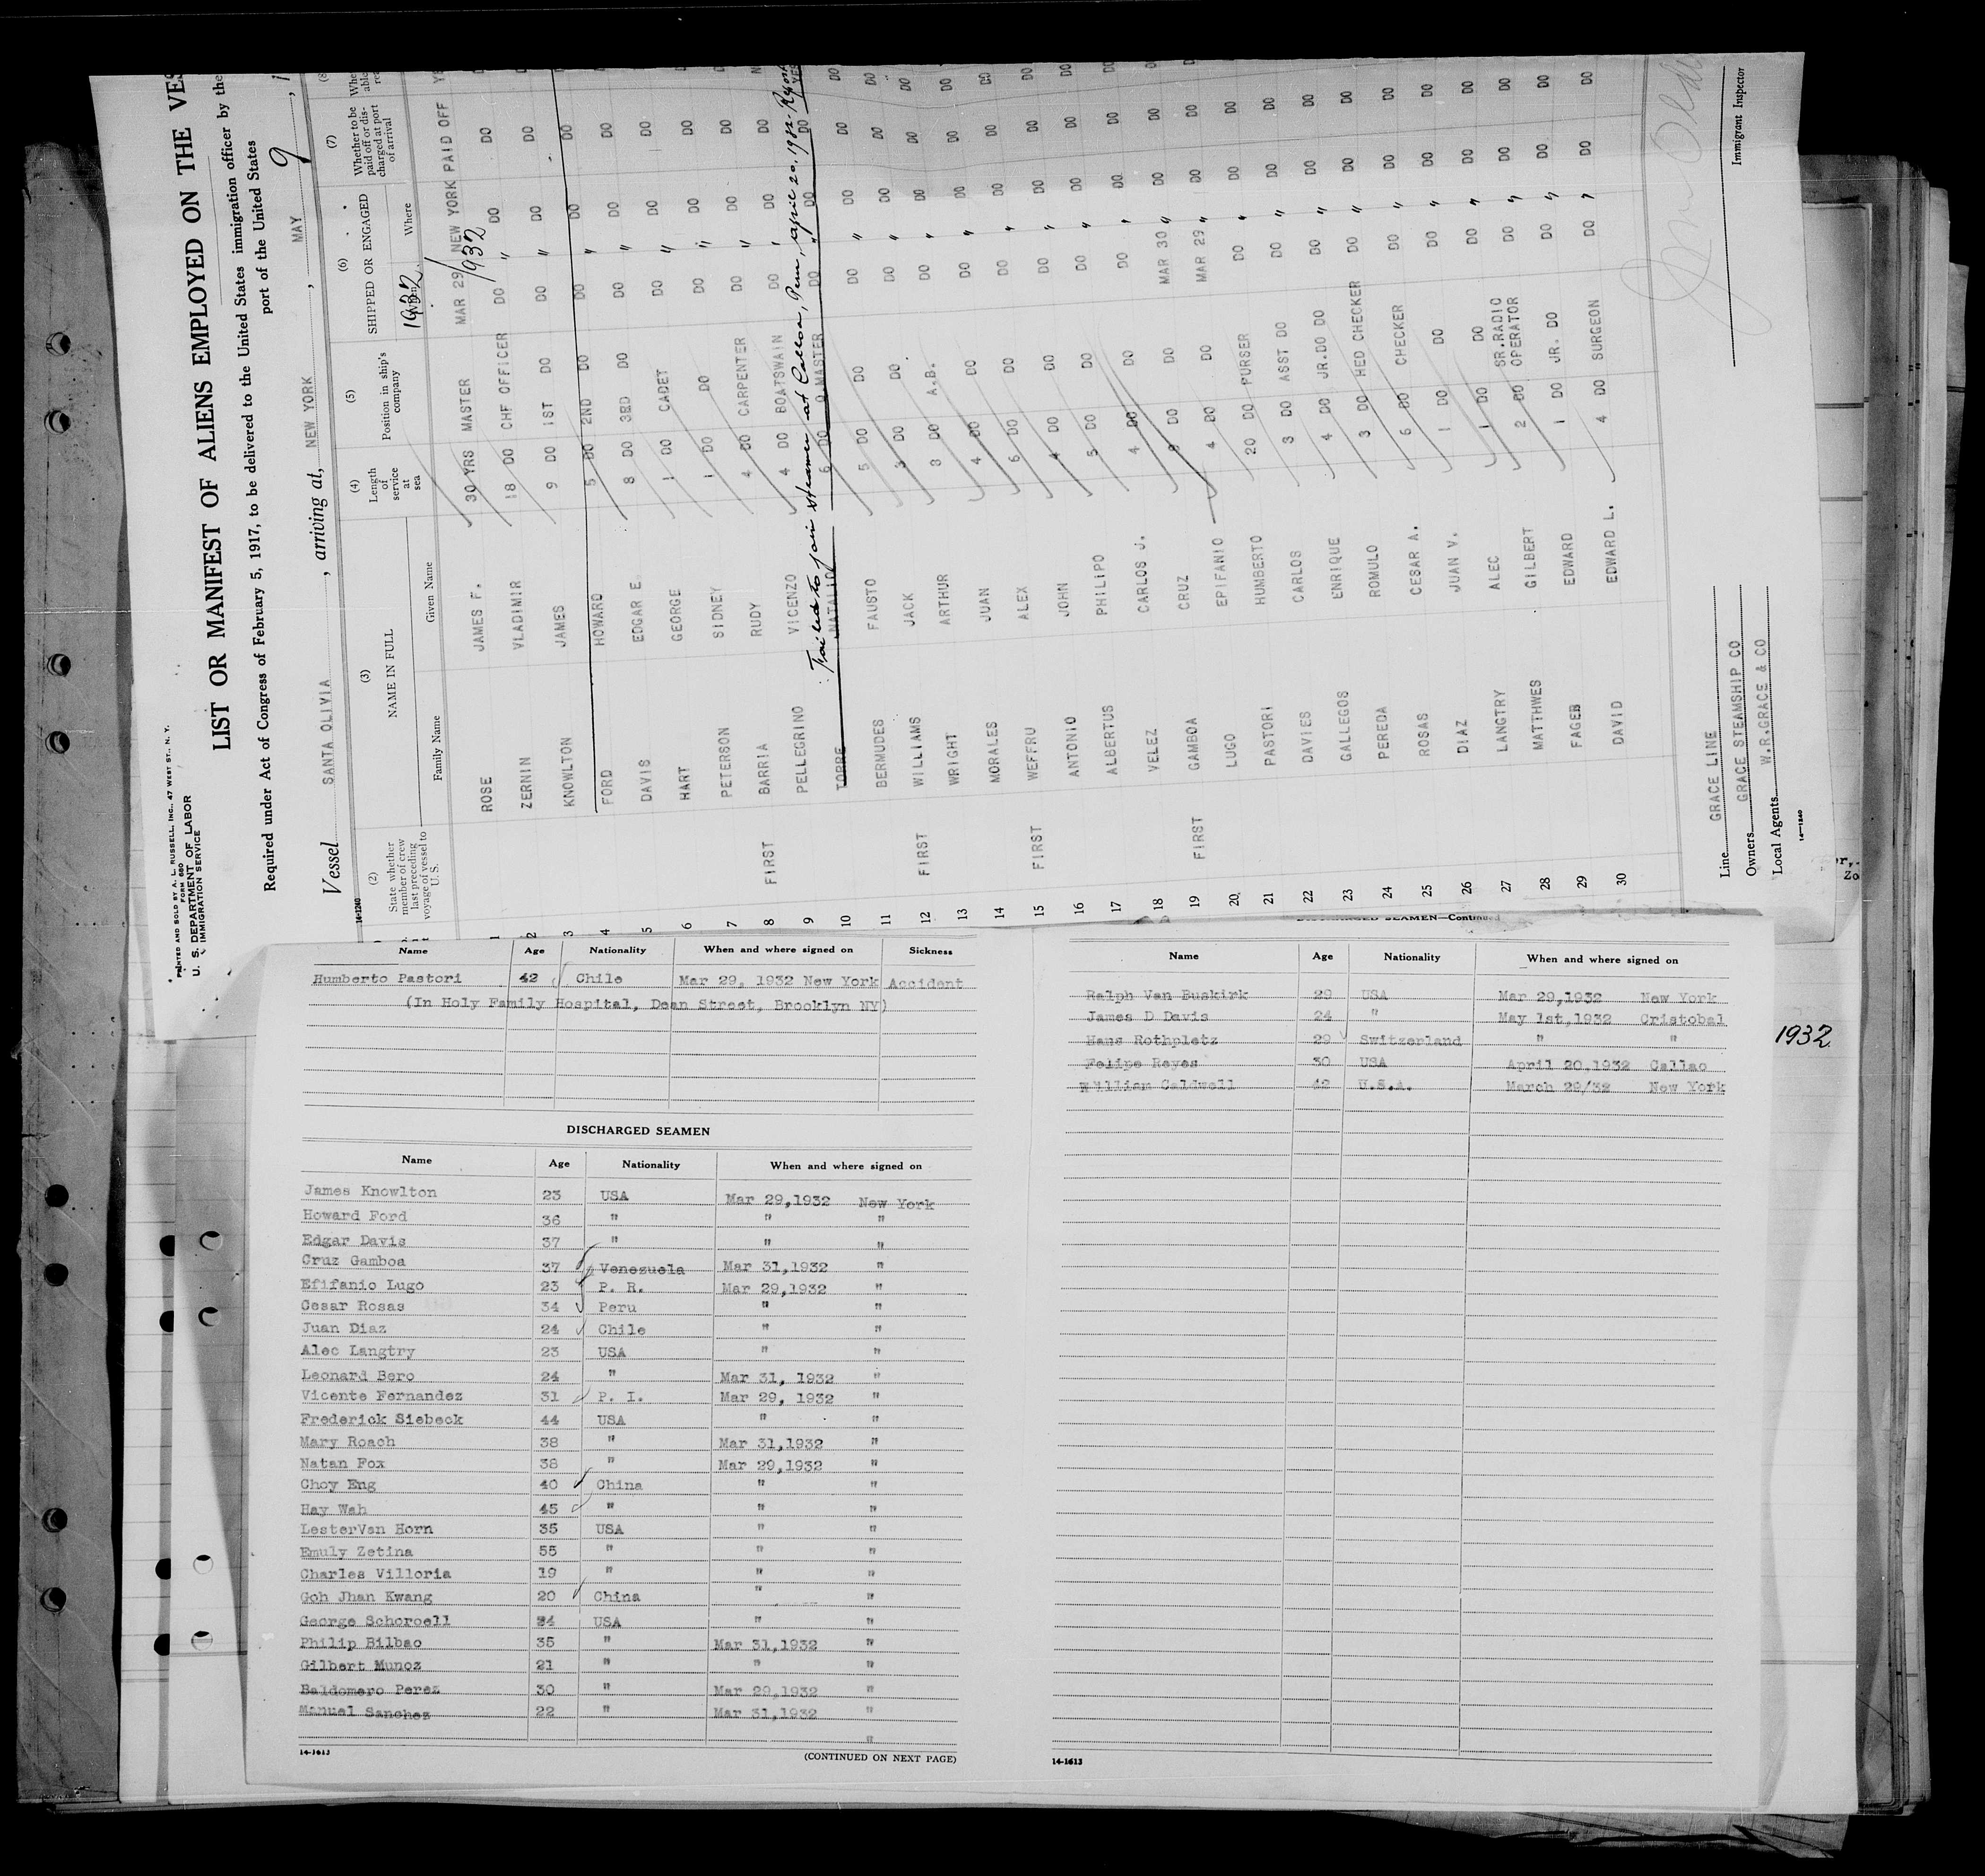 PRINTED AND SOLD BY A. L. RUSSELL, INC., 47 WEST ST., N. Y.
FORM 680
U. S. DEPARTMENT OF LABOR
IMMIGRATION SERVICE
LIST OR MANIFEST OF ALIENS EMPLOYED ON THE VES
Required under Act of Congress of February 5, 1917, to be delivered to the United States immigration officer by the
port of the United States
Vessel SANTA OLIVIA, arriving at, NEW YORK, MAY 9, 1
14-1240
(2) (3) (4) (5) (6) (7) (8
State whether member of crew last preceding voyage of vessel to U. S.
NAME IN FULL
Family Name Given Name
Length of service at sea
Position in ship's company
SHIPPED OR ENGAGED
When Where
1932
Whether to be paid off or discharged at port of arrival
1 ROSE JAMES F. 30 YRS MASTER MAR 29 NEW YORK PAID OFF YE
1932
2 ZERNIN VLADIMIR 18 DO CHF OFFICER DO " DO DO
3 KNOWLTON JAMES 9 DO 1ST DO DO " DO DO
4 FORD HOWARD 5 DO 2ND DO DO DO DO
5 DAVIS EDGAR E. 8 DO 3RD DO DO " DO DO
6 HART GEORGE 1 DO CADET DO " DO DO
7 PETERSON SIDNEY 1 DO DO DO " DO DO
8 FIRST BARRIA RUDY 4 DO CARPENTER DO " DO DO
9 PELLEGRINO VICENZO 4 DO BOATSWAIN DO " DO DO
Failed to join steamer at Callao, Peru, april 20, 1932.
10 TORRE NATALIO 6 DO Q MASTER DO " DO DO YES
11 BERMUDES FAUSTO 5 DO DO DO " DO DO DO
12 FIRST WILLIAMS JACK 3 DO DO DO " DO DO DO
13 WRIGHT ARTHUR 3 DO A.B. DO " DO DO DO
14 MORALES JUAN 4 DO DO DO " DO DO DO
15 FIRST WEFFRU ALEX 6 DO DO DO " DO DO DO
16 ANTONIO JOHN 4 DO DO DO " DO DO DO
17 ALBERTUS PHILIPO 5 DO DO DO " DO DO DO
18 VELEZ CARLOS J. 4 DO DO DO " DO DO DO
19 FIRST GAMBOA CRUZ 8 DO DO MAR 30 " DO DO
20 LUGO EPIFANIO 4 DO DO MAR 29 " DO DO
21 PASTORI HUMBERTO 20 DO PURSER DO " DO DO DO
22 DAVIES CARLOS 3 DO ASST DO DO " DO DO DO
23 GALLEGOS ENRIQUE 4 DO JR.DO DO DO " DO DO DO
24 PEREDA ROMULO 3 DO HED CHECKER DO " DO DO DO
25 ROSAS CESAR A. 6 DO CHECKER DO " DO DO DO
26 DIAZ JUAN V. 1 DO DO DO " DO DO DO
27 LANGTRY ALEC 1 DO DO DO " DO DO DO
28 MATTHWES GILBERT 2 DO SR.RADIO OPERATOR DO " DO DO DO
29 FAGEB EDWARD 1 DO JR. DO DO " DO DO DO
30 DAVID EDWARD L. 4 DO SURGEON DO " DO DO DO
Line GRACE LINE
Owners GRACE STEAMSHIP CO
Local Agents W.R.GRACE & CO
14-1240
Immigrant Inspector
Name Age Nationality When and where signed on Sickness
Humberto Pastori 42 Chile Mar 29, 1932 New York Accident
(In Holy Family Hospital, Dean Street, Brooklyn NY)
DISCHARGED SEAMEN
Name Age Nationality When and where signed on
James Knowlton 23 USA Mar 29,1932 New York
Howard Ford 36 " " "
Edgar Davis 37 " " "
Cruz Gamboa 37 Venezuela Mar 31,1932 "
Efifanio Lugo 23 P. R. Mar 29,1932 "
Cesar Rosas 34 Peru " "
Juan Diaz 24 Chile " "
Alec Langtry 23 USA " "
Leonard Bero 24 " Mar 31, 1932 "
Vicente Fernandez 31 P. I. Mar 29, 1932 "
Frederick Siebeck 44 USA " "
Mary Roach 38 " Mar 31,1932 "
Natan Fox 38 " Mar 29,1932 "
Choy Eng 40 China " "
Hay Wah 45 " " "
LesterVan Horn 35 USA " "
Emuly Zetina 55 " " "
Charles Villoria 19 " " "
Goh Jhan Kwang 20 China " "
George Schoroell 34 USA " "
Philip Bilbao 35 " Mar 31,1932 "
Gilbert Munoz 21 " " "
Baldomero Perez 30 " Mar 29,1932 "
Manuel Sanchez 22 " Mar 31,1932 "
"
14-1613 (CONTINUED ON NEXT PAGE)
DISCHARGED SEAMEN—Continued
Name Age Nationality When and where signed on
Ralph Van Buskirk 29 USA Mar 29,1932 New York
James D Davis 24 " May 1st,1932 Cristobal
Hans Rothpletz 29 Switzerland " "
Felipe Reyes 30 USA April 20,1932 Callao
William Caldwell 42 U.S.A. March 29/32 New York
14-1613
1932